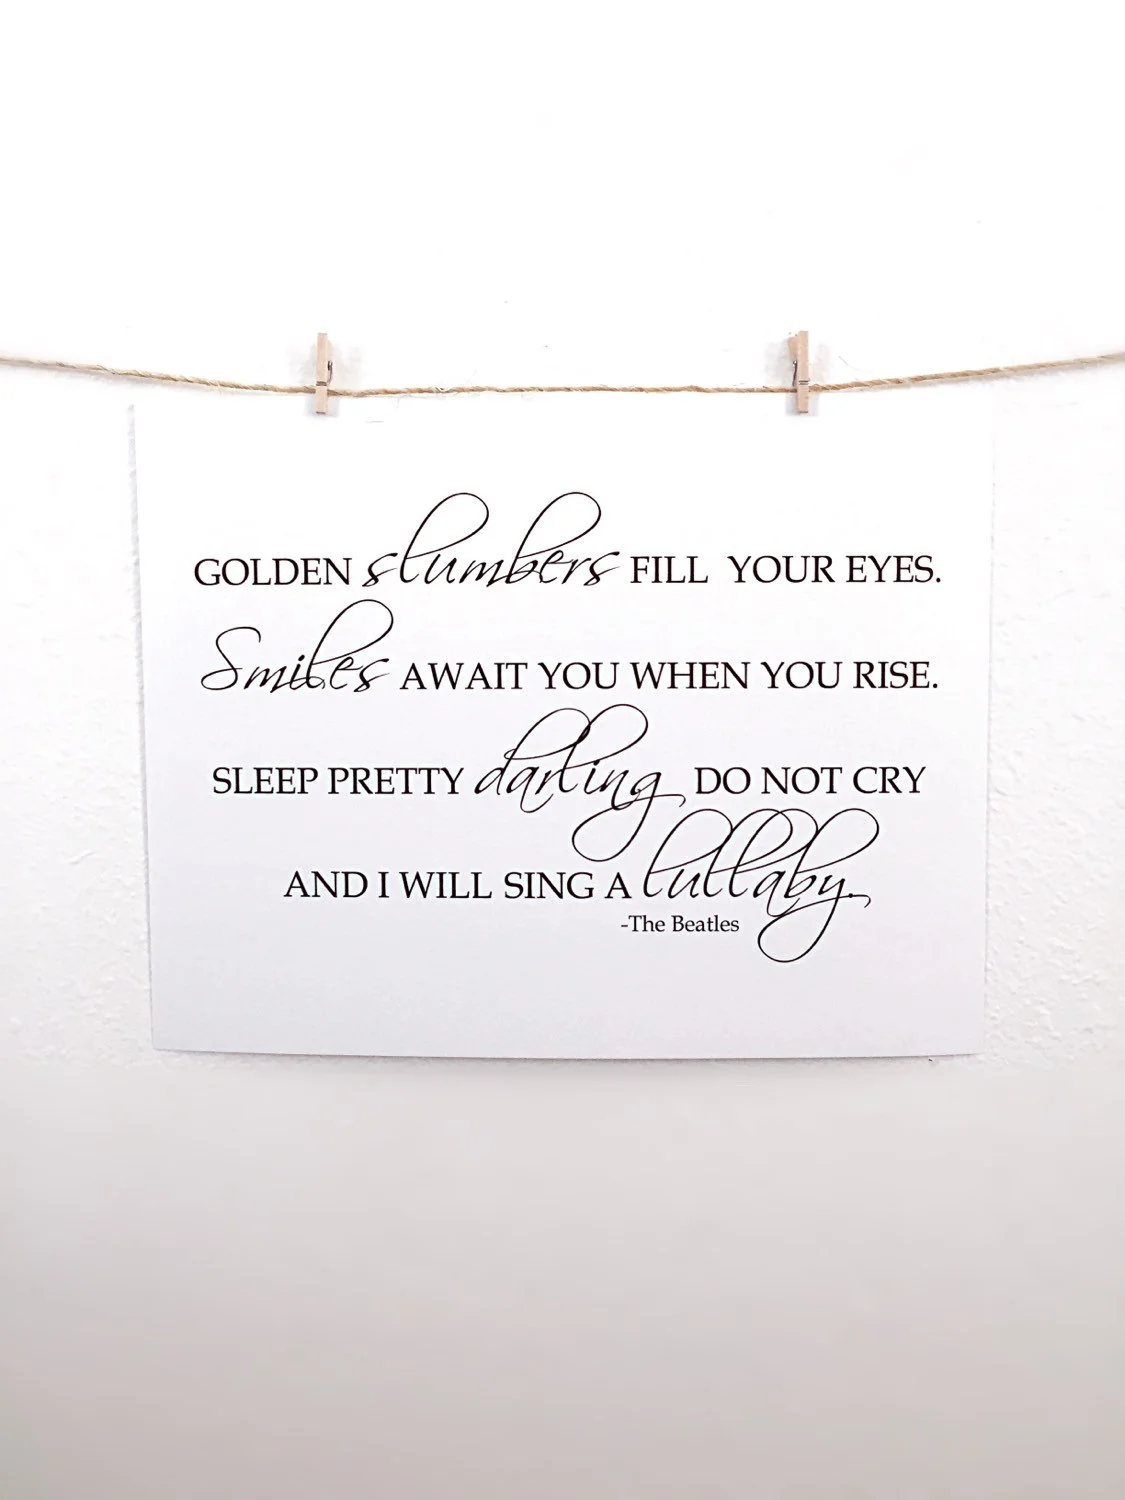 GOLDEN slumbers FILL YOUR EYES.
Smiles AWAIT YOU WHEN YOU RISE.
SLEEP PRETTY darling DO NOT CRY
AND I WILL SING A lullaby.
-The Beatles